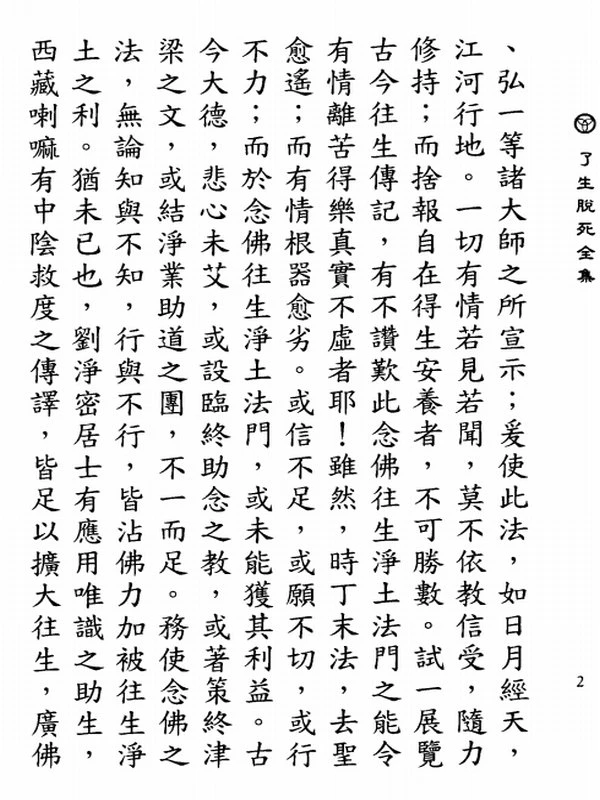 了生脫死全集
2
、弘一等諸大師之所宣示；爰使此法，如日月經天，
江河行地。一切有情若見若聞，莫不依教信受，隨力
修持；而捨報自在得生安養者，不可勝數。試一展覽
古今往生傳記，有不讚歎此念佛往生淨土法門之能令
有情離苦得樂真實不虛者耶！雖然，時丁末法，去聖
愈遙；而有情根器愈劣。或信不足，或願不切，或行
不力；而於念佛往生淨土法門，或未能獲其利益。古
今大德，悲心未艾，或設臨終助念之教，或著策終津
梁之文，或結淨業助道之團，不一而足。務使念佛之
法，無論知與不知，行與不行，皆沾佛力加被往生淨
土之利。猶未已也，劉淨密居士有應用唯識之助生，
西藏喇嘛有中陰救度之傳譯，皆足以擴大往生，廣佛